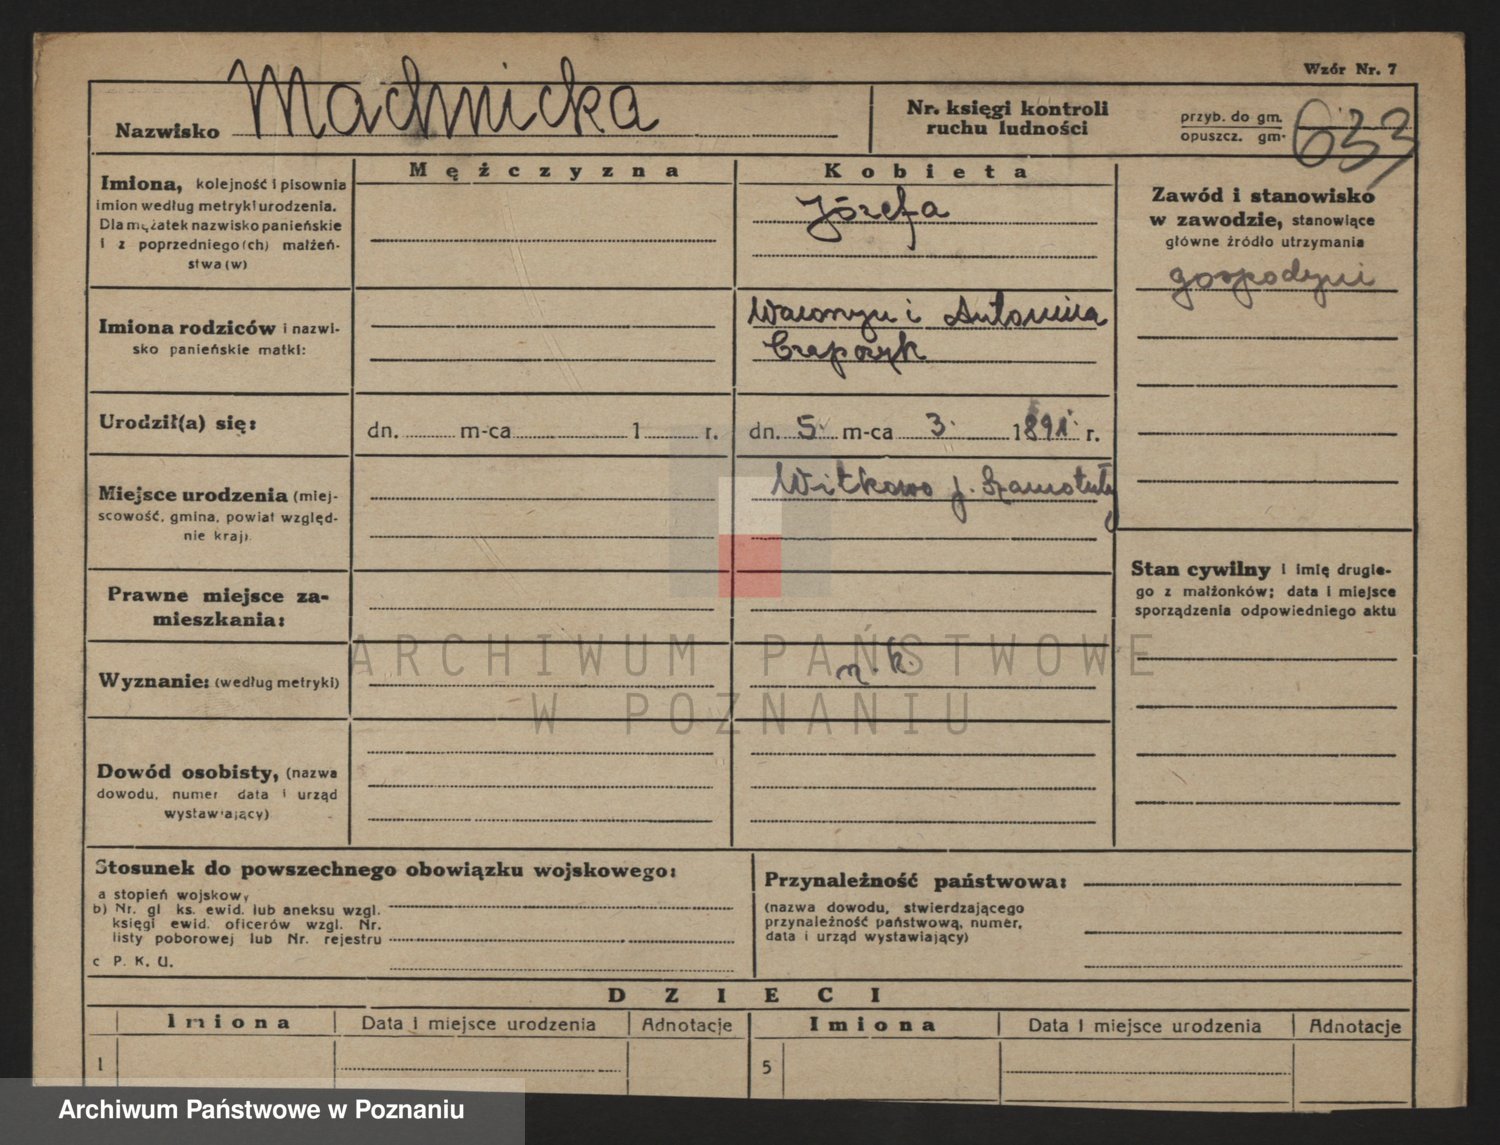 Wzór Nr. 7
Nazwisko Machnicka
Nr. księgi kontroli
ruchu ludności
przyb. do gm.
opuszcz. gm.
633
Mężczyzna
Kobieta
Imiona, kolejność i pisownia
imion według metryki urodzenia.
Dla mężatek nazwisko panieńskie
i z poprzedniego(ch) małżeń-
stwa(w)
Józefa
Zawód i stanowisko
w zawodzie, stanowiące
główne źródło utrzymania
gospodyni
Imiona rodziców i nazwi-
sko panieńskie matki:
Wawrzyn i Antonina
Urodził(a) się:
dn. m-ca 1 r.
dn. 5. m-ca 3. 1891. r.
Miejsce urodzenia (miej-
scowość, gmina, powiat względ-
nie kraj)
Witkowo p. Szamotuły
Stan cywilny i imię drugie-
go z małżonków; data i miejsce
sporządzenia odpowiedniego aktu
Prawne miejsce za-
mieszkania:
Wyznanie: (według metryki)
r. k.
ARCHIWUM PAŃSTWOWE
W POZNANIU
Dowód osobisty, (nazwa
dowodu, numer data i urząd
wystawiający)
Stosunek do powszechnego obowiązku wojskowego:
a stopień wojskowy
b) Nr. gl ks. ewid. lub aneksu wzgl.
księgi ewid. oficerów wzgl. Nr.
listy poborowej lub Nr. rejestru
c P. K. U.
Przynależność państwowa:
(nazwa dowodu, stwierdzającego
przynależność państwową, numer,
data i urząd wystawiający)
DZIECI
Imiona Data i miejsce urodzenia Adnotacje Imiona Data i miejsce urodzenia Adnotacje
1 5
Archiwum Państwowe w Poznaniu